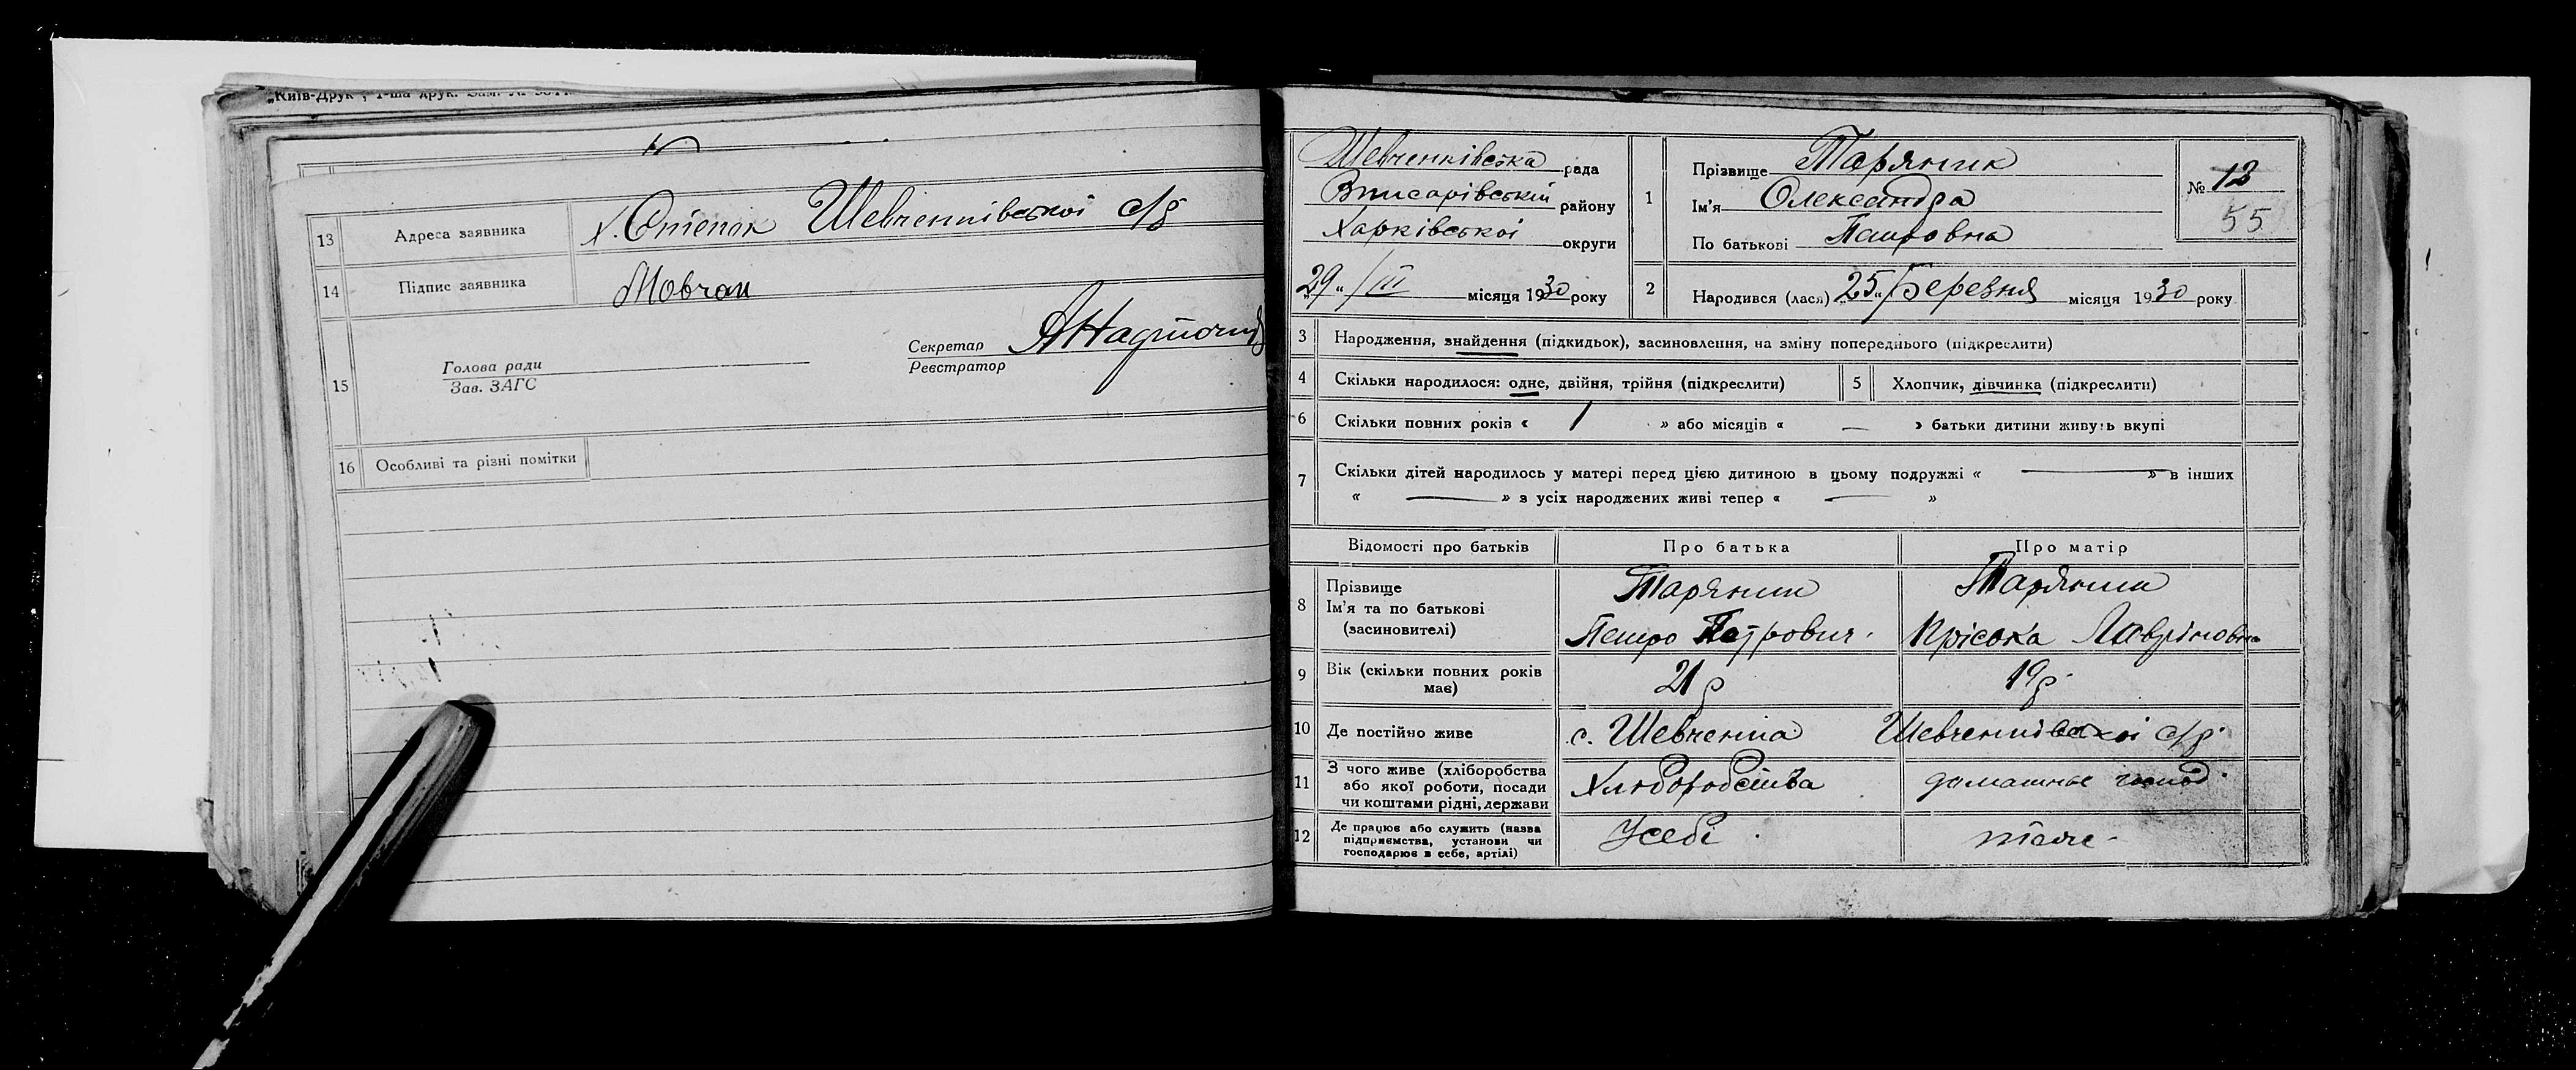 „Київ-Друк", 1-ша друк. Зам. №
13 Адреса заявника х. Степок Шевченківської с/р
14 Підпис заявника Мовчан
15 Голова ради
Зав. ЗАГС
Секретар
Реєстратор
16 Особливі та різні помітки
Шевченківська рада
району
Харківської округи
„29" / III місяця 1930 року
1 Прізвище Таряник
Ім'я Олександра
По батькові Петровна
№ 12
55
2 Народився (лася) „25" Березня місяця 1930 року
3 Народження, знайдення (підкидьок), засиновлення, на зміну попереднього (підкреслити)
4 Скільки народилося: одне, двійня, трійня (підкреслити) 5 Хлопчик, дівчинка (підкреслити)
6 Скільки повних років « 1 » або місяців « — » батьки дитини живуть вкупі
7 Скільки дітей народилось у матері перед цією дитиною в цьому подружжі « — » в інших
« — » з усіх народжених живі тепер « — »
Відомості про батьків Про батька Про матір
8 Прізвище Таряник Таряник
Ім'я та по батькові
(засновителі) Петро Петрович. Пріська Лавріновна
9 Вік (скільки повних років має) 21 р 19 р.
10 Де постійно живе с. Шевченка Шевченківської с/р.
11 З чого живе (хліборобства
або якої роботи, посади
чи коштами рідні, держави Хлюборобства домашнє господ.
12 Де працює або служить (назва
підприємства, установи чи
господарює в себе, артілі) У себе теж